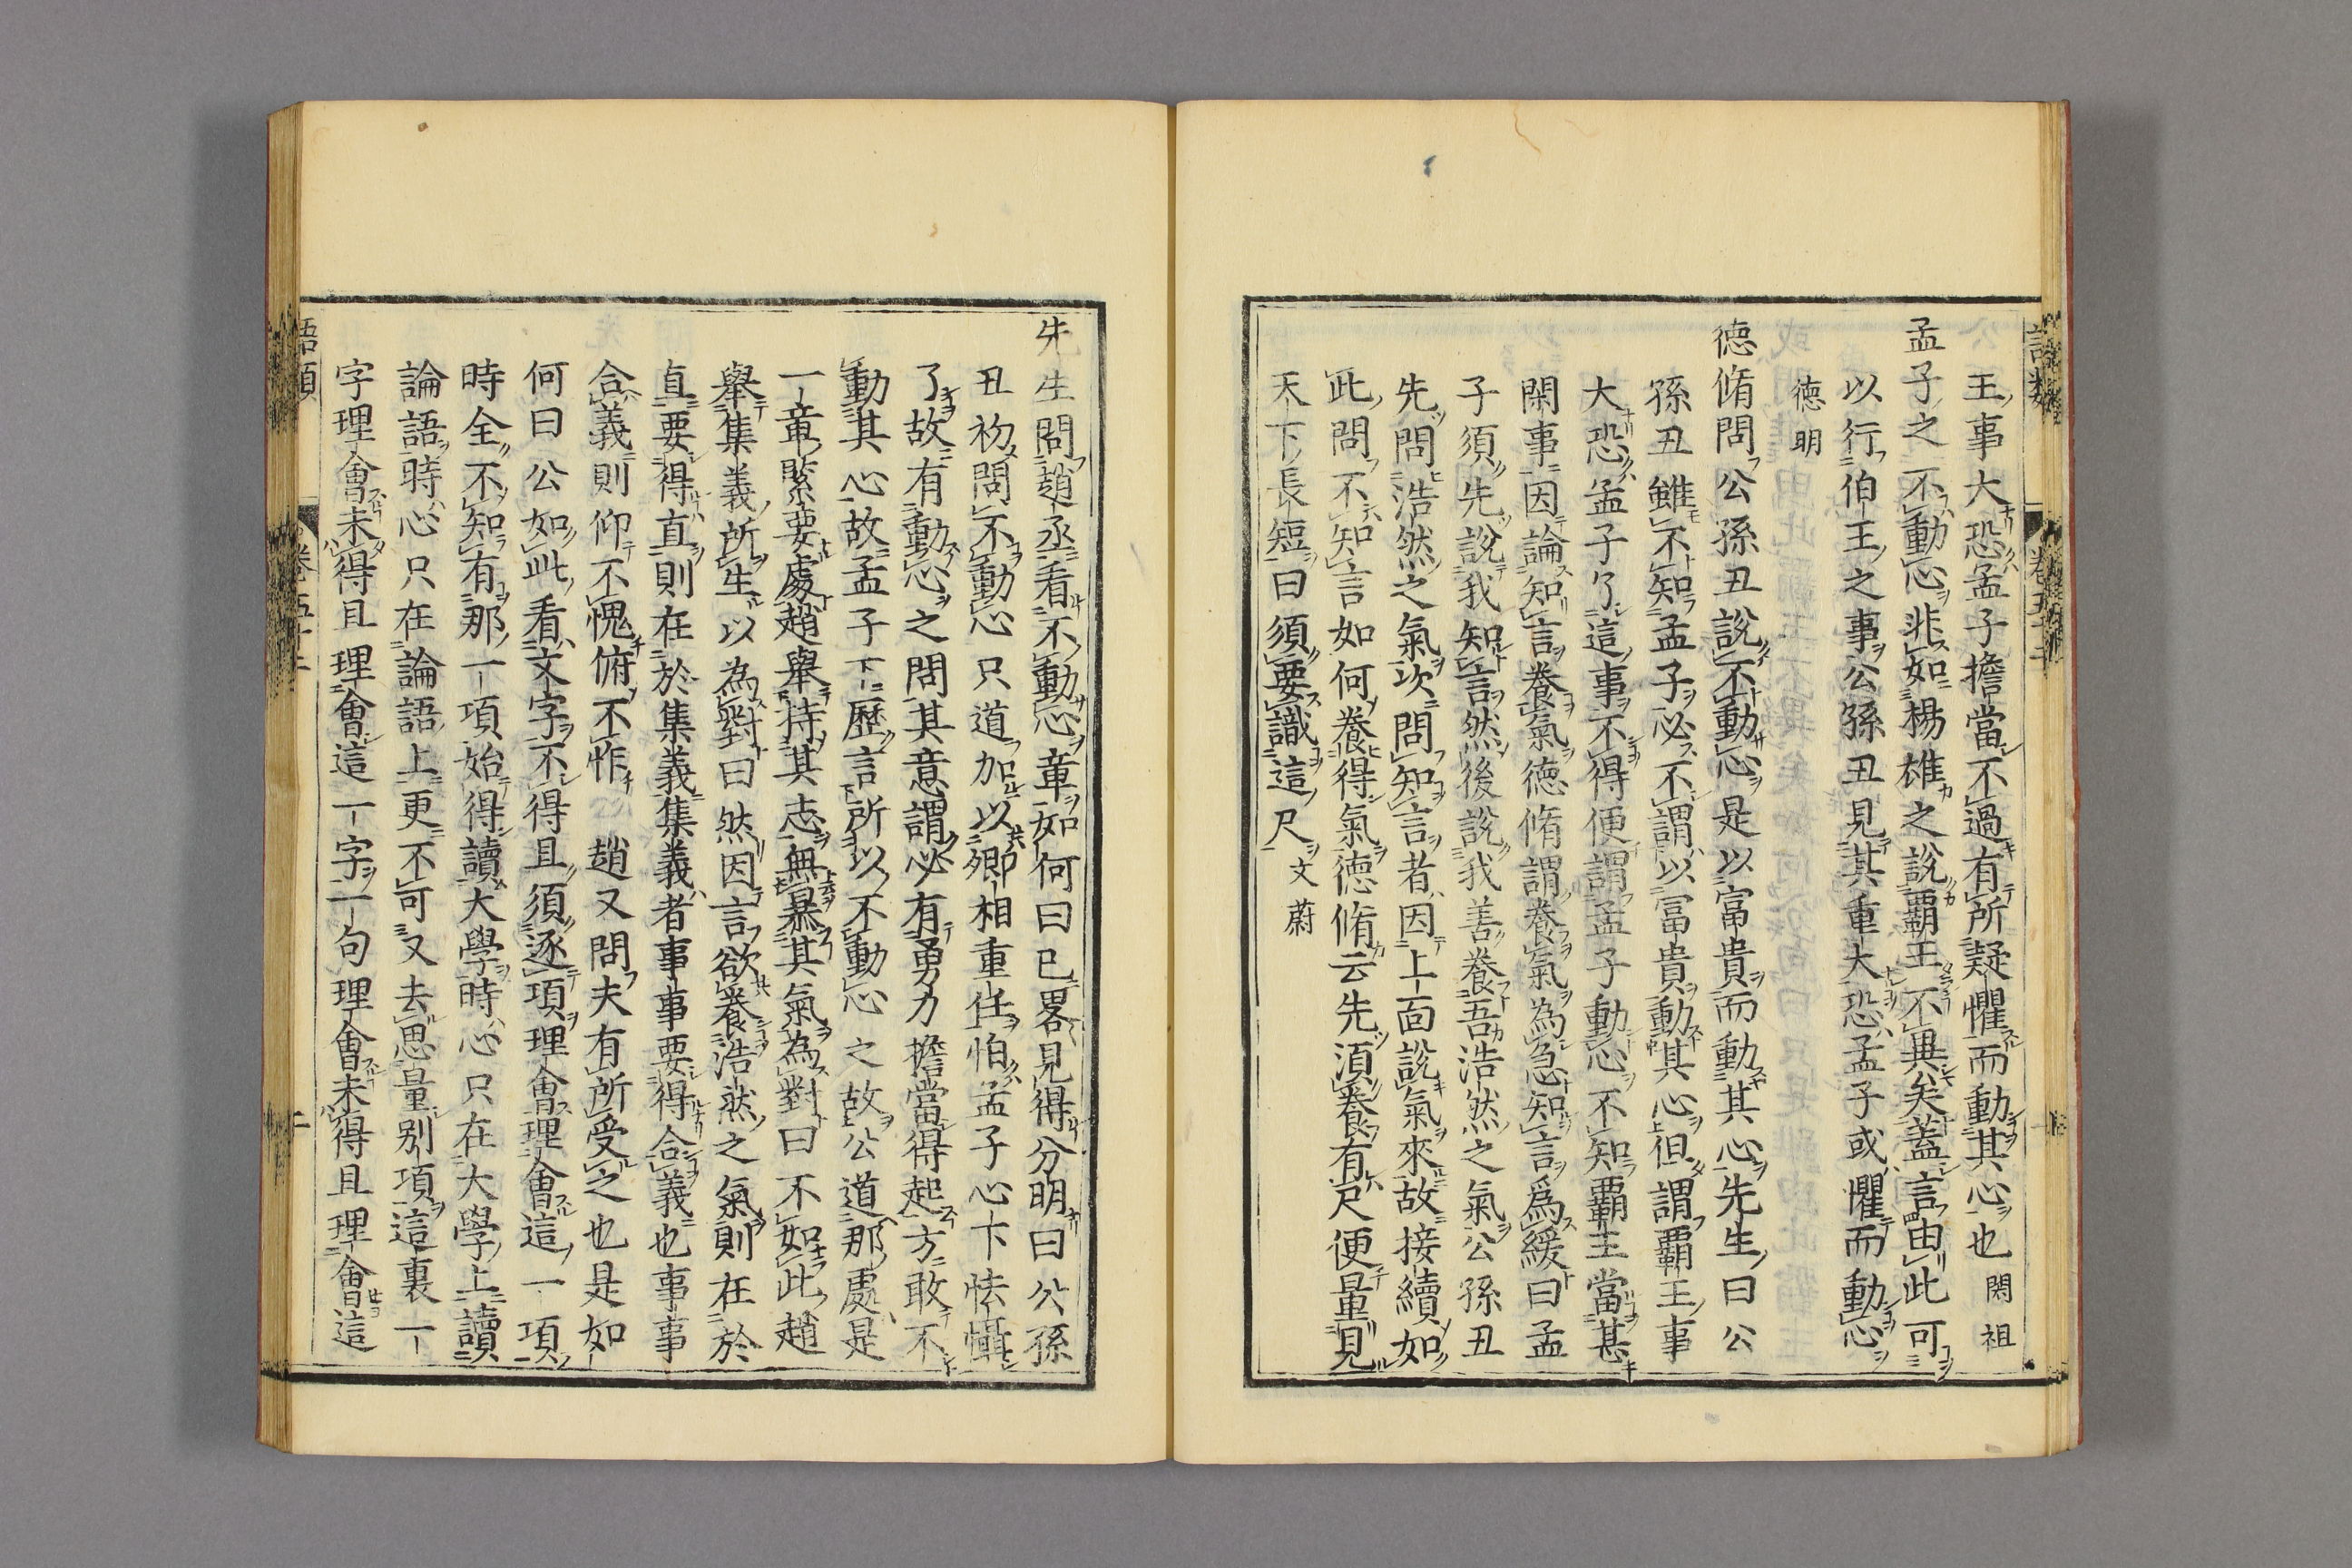 王事大恐孟子擔當不過有所疑懼而動其心也閎祖
孟子之不動心非如楊雄之說霸王不異矣蓋言由此可
以行伯王之事公孫丑見其重大恐孟子或懼而動心
德明
德脩問公孫丑說不動心是以富貴而動其心先生曰公
孫丑雖不知孟子必不謂以富貴動其心但謂霸王事
大恐孟子了這事不得便謂孟子動心不知霸王當甚
閑事因論知言養氣德脩謂養氣為急知言爲緩曰孟
子須先說我知言然後說我善養吾浩然之氣公孫丑
先問浩然之氣次問知言者因上面說氣來故接續如
此問不知言如何養得氣德脩云先須養有尺便量見
天下長短曰須要識這尺文蔚
先生問趙丞看不動心章如何曰已畧見得分明曰公孫
丑初問不動心只道加以卿相重任怕孟子心下怯懾
了故有動心之問其意謂必有勇力擔當得起方敢不
動其心故孟子下歷言所以不動心之故公道那處是
一章緊要處趙舉持其志無暴其氣為對曰不如此趙
舉集義所生以為對曰然因言欲養浩然之氣則在於
直要得直則在於集義集義者事事要得合義也事事
合義則仰不愧俯不怍 趙又問夫有所受之也是如
何曰公如此看文字不得且須逐項理會理會這一項
時全不知有那一項始得讀大學時心只在大學上讀
論語時心只在論語上更不可又去思量別項這裏一
字理會未得且理會這一字一句理會未得且理會這
語類 卷五十二 二